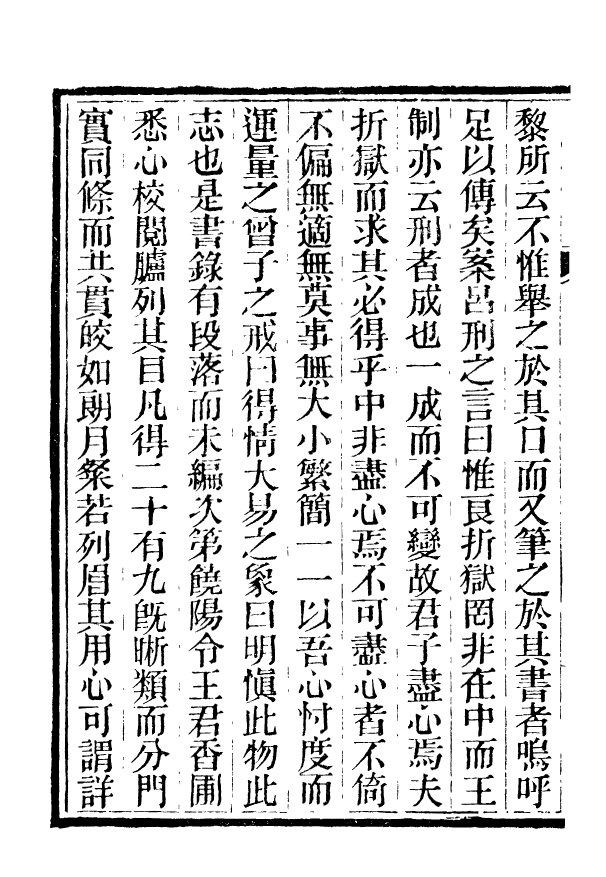 黎所云不惟舉之於其口而又筆之於其書者嗚呼
足以傳矣案呂刑之言曰惟良折獄罔非在中而王
制亦云刑者成也一成而不可變故君子盡心焉夫
折獄而求其必得乎中非盡心焉不可盡心者不倚
不偏無適無莫事無大小繁簡一一以吾心忖度而
運量之曾子之戒曰得情大易之象曰明慎此物此
志也是書錄有段落而未編次第饒陽令王君香圃
悉心校閱臚列其目凡得二十有九旣晰類而分門
實同條而共貫皎如朗月粲若列眉其用心可謂詳